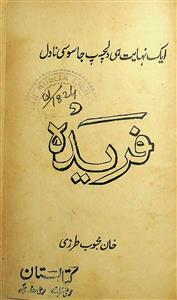 ایک نہایت ہی دلچسپ جاسوسی ناول
فریدہ
خان محبوب طرزی
کتابستان